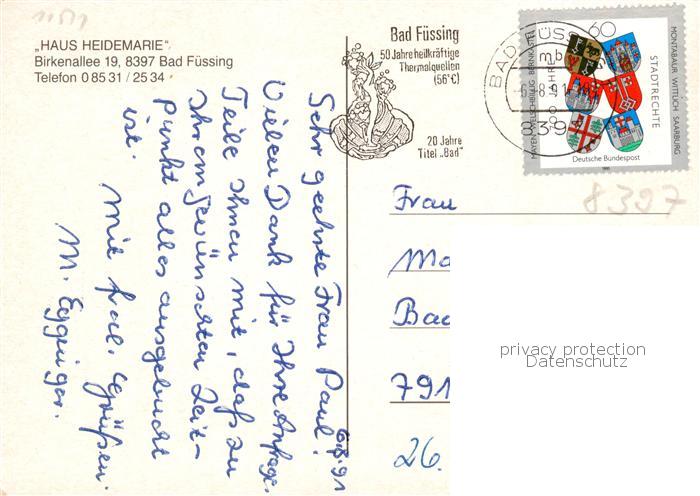 11511
„HAUS HEIDEMARIE“
Birkenallee 19, 8397 Bad Füssing
Telefon 0 85 31 / 25 34
Bad Füssing
50 Jahre heilkräftige
Thermalquellen
(56°C)
20 Jahre
Titel „Bad“
BAD FÜSS
mb
-6.-8.91
839
60
STADTRECHTE
HONTABAUR WITTLICH SAARBURG
Deutsche Bundespost
8397
6.8.91
Sehr geehrte Frau Paul!
Vielen Dank für Ihre Anfrage.
Teile Ihnen mit, daß zu
Ihrem gewünschten Zeit-
punkt alles ausgebucht
ist.
Mit frdl. Grüßen.
M. Egginger.
Frau
Ma
Bad
791
26.
privacy protection
Datenschutz